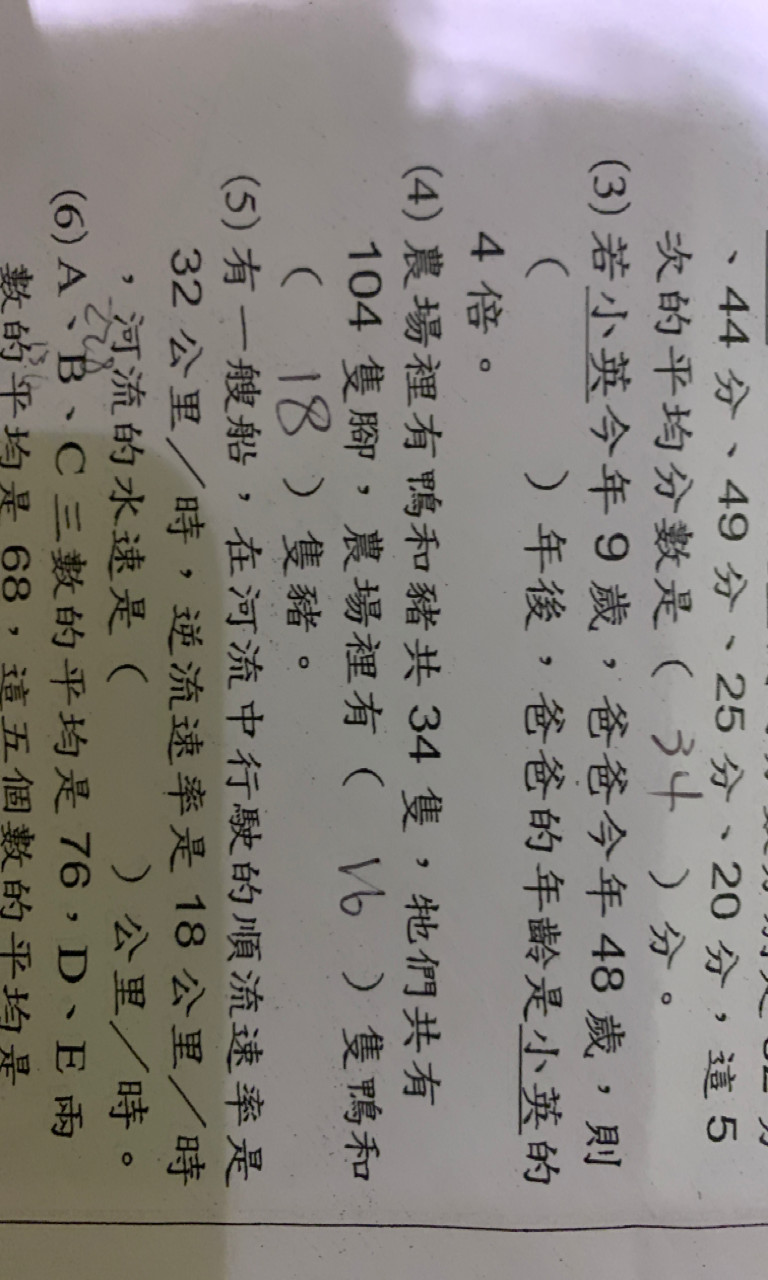 、44分、49分、25分、20分，這5
次的平均分數是（ 34 ）分。
(3)若小英今年9歲，爸爸今年48歲，則
（　　）年後，爸爸的年齡是小英的
4倍。
(4)農場裡有鴨和豬共34隻，牠們共有
104隻腳，農場裡有（ 16 ）隻鴨和
（ 18 ）隻豬。
(5)有一艘船，在河流中行駛的順流速率是
32公里／時，逆流速率是18公里／時
，河流的水速是（　　）公里／時。
(6)A、B、C三數的平均是76，D、E兩
數的平均是68，這五個數的平均是